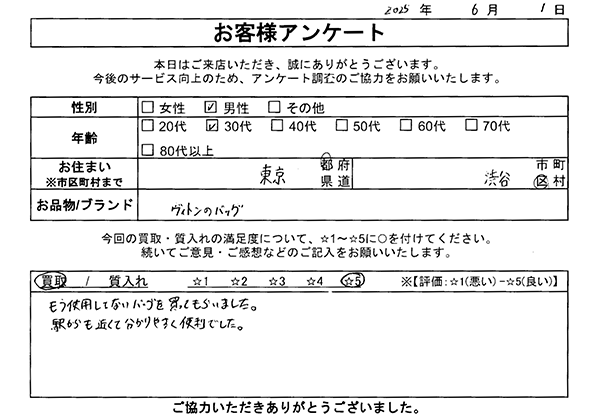 2025 年 6 月 1 日
お客様アンケート
本日はご来店いただき、誠にありがとうございます。
今後のサービス向上のため、アンケート調査のご協力をお願いいたします。
性別 □ 女性 ☑ 男性 □ その他
年齢 □ 20代 ☑ 30代 □ 40代 □ 50代 □ 60代 □ 70代
□ 80代以上
お住まい ※市区町村まで 東京 都 府 県 道 渋谷 市 町 区 村
お品物/ブランド ヴィトンのバッグ
今回の買取・質入れの満足度について、☆1～☆5に○を付けてください。
続いてご意見・ご感想などのご記入をお願いいたします。
買取 / 質入れ ☆1 ☆2 ☆3 ☆4 ☆5 ※【評価:☆1(悪い)-☆5(良い)】
もう使用してないバッグを買ってもらいました。
駅からも近くて分かりやすく便利でした。
ご協力いただきありがとうございました。